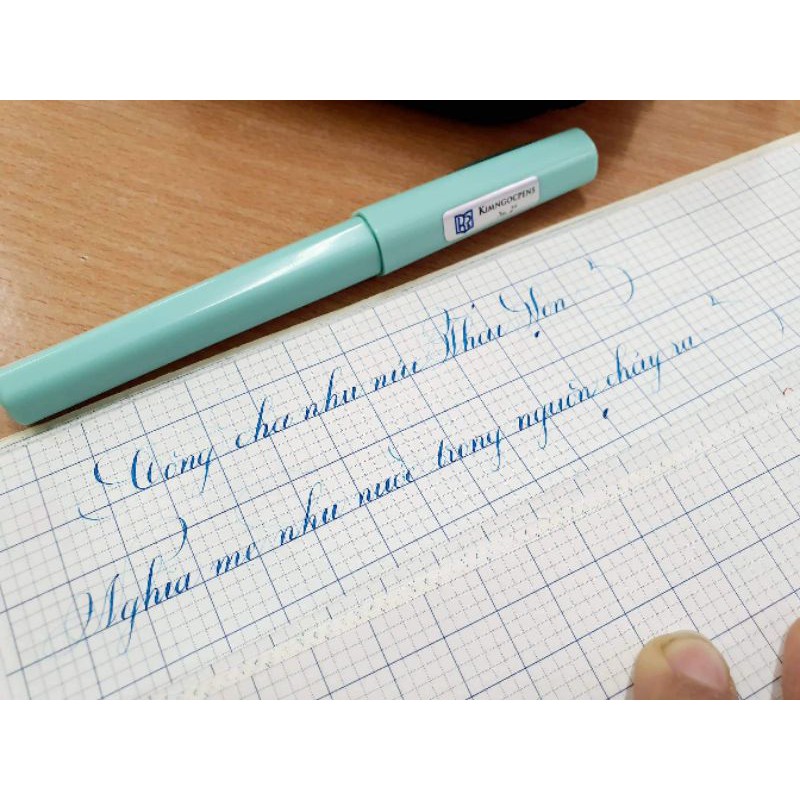 KIMNGOCPENS
Công cha như núi Thái Sơn
Nghĩa mẹ như nước trong nguồn chảy ra